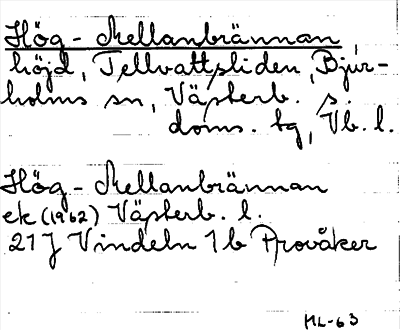 Hög-Mellanbrännan,
höjd, Tellvattsliden, Bjur-
holms sn, Västerb. s.
doms. tg, Vb. l.
Hög-Mellanbrännan
ek (1962) Västerb. l.
21J Vindeln 1b Provåker
ML-63